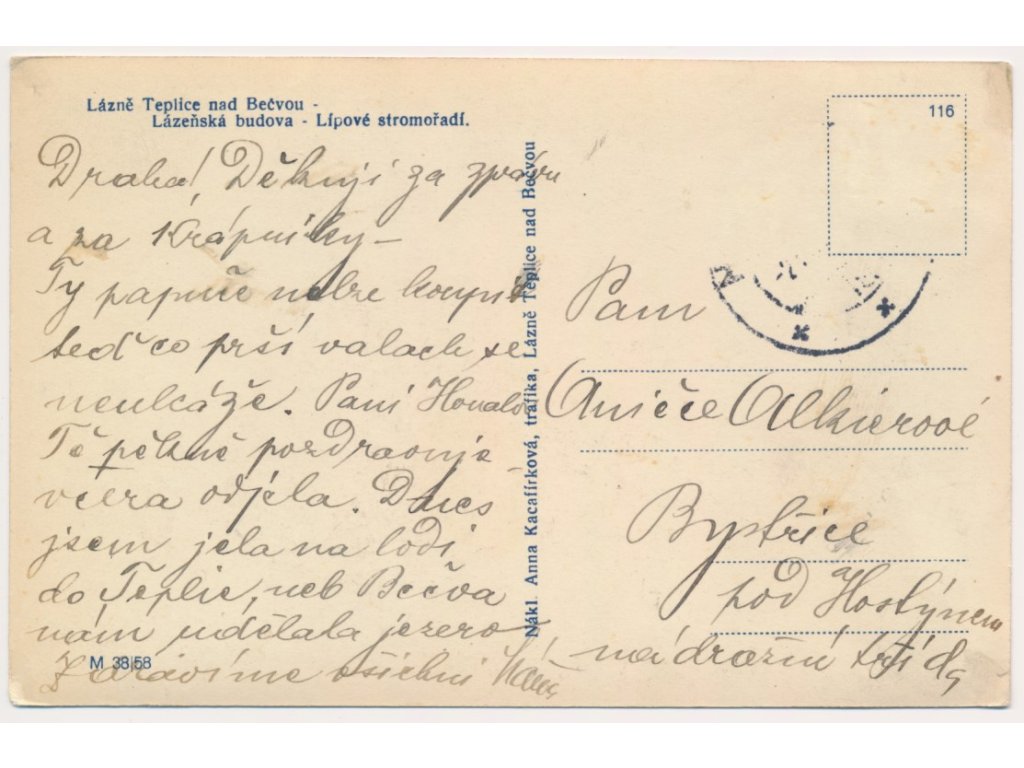 Lázně Teplice nad Bečvou -
Lázeňská budova - Lípové stromořadí.
116
Drahá! Děkuji za zprávu
a za Krápníky -
Ty papuče nelze koupit
teď co prší valach se
neukáže. Paní
Tě pěkně pozdravuje
včera odjela. Dnes
jsem jela na lodi
do Teplic, neb Bečva
nám udělala jezero
Zdravíme všichni
M 38|58
Nákl. Anna Kacafírková, trafika, Lázně Teplice nad Bečvou
Paní
Aničce Alkierové
Bystřice
pod Hostýnem
nádražní třída